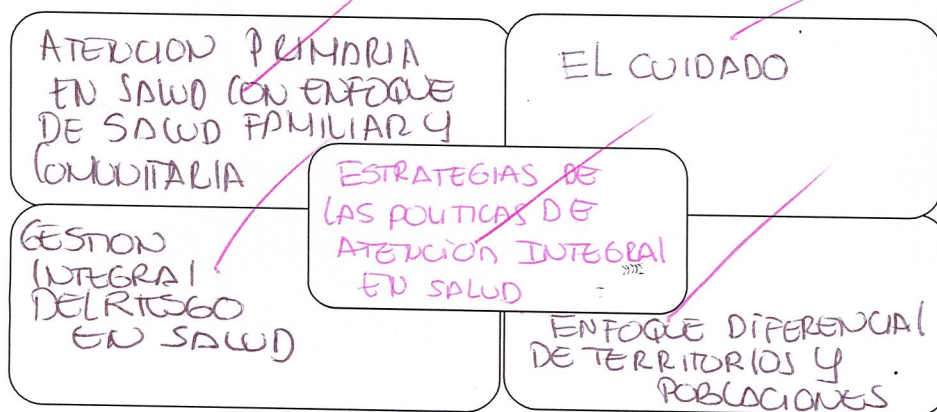 ATENCION PRIMARIA
EN SALUD CON ENFOQUE
DE SALUD FAMILIAR Y
COMUNITARIA
EL CUIDADO
ESTRATEGIAS DE
LAS POLITICAS DE
ATENCIÓN INTEGRAL
EN SALUD
GESTION
INTEGRAL
DEL RIESGO
EN SALUD
ENFOQUE DIFERENCIAL
DE TERRITORIOS Y
POBLACIONES